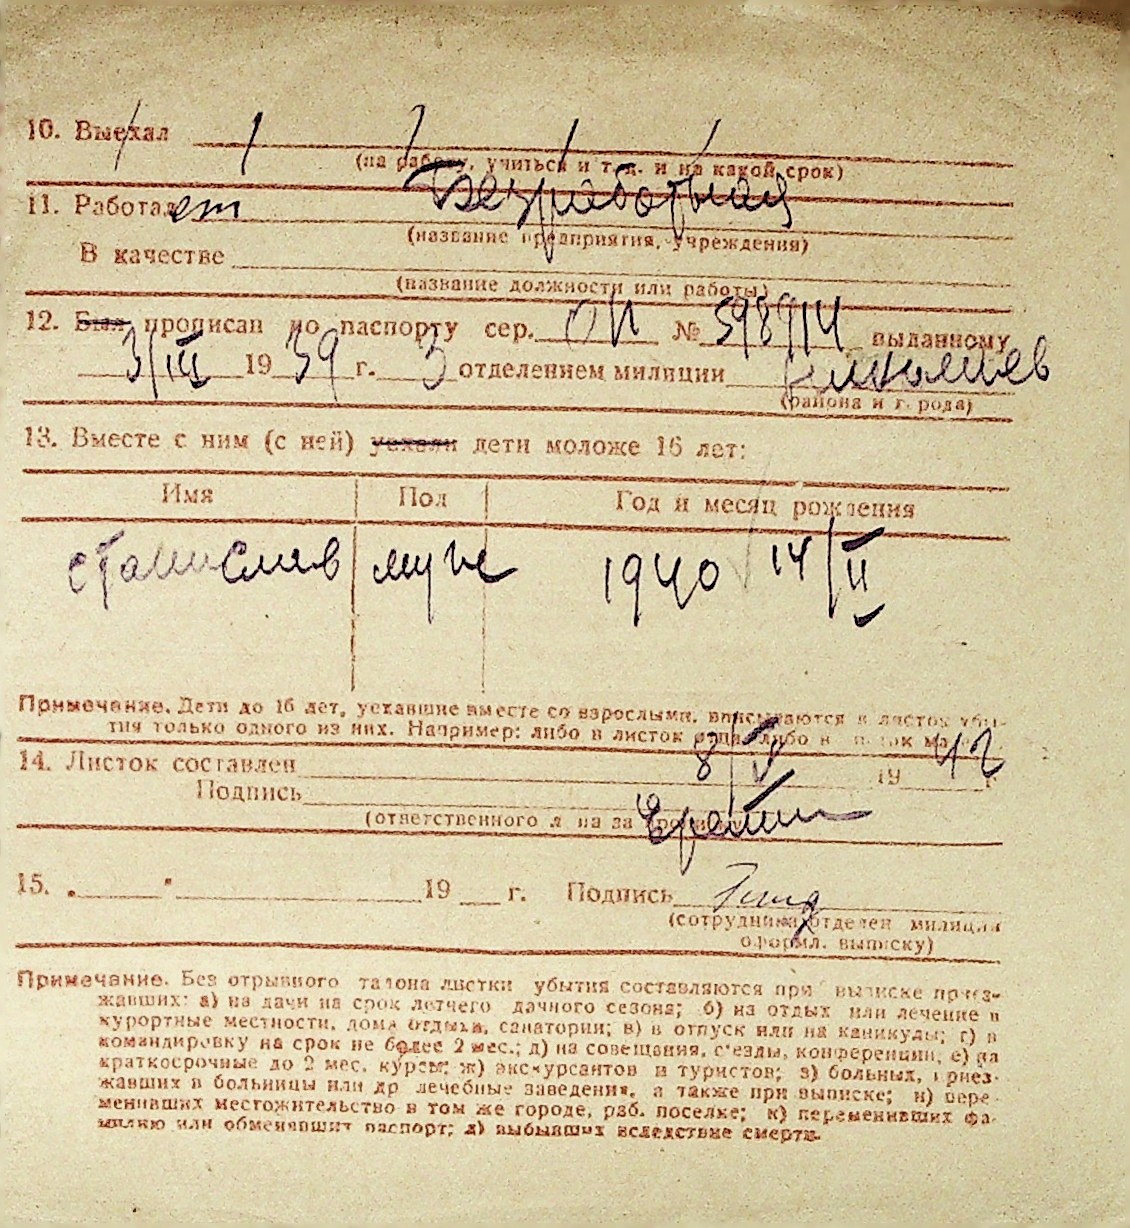 10. Выехал
(на работу, учиться и т. д. и на какой срок)
11. Работает Безработная
(название предприятия, учреждения)
В качестве
(название должности или работы)
12. Был прописан по паспорту сер. ОК № 598914 выданному
3/III 1939 г. 3 отделением милиции Николаев
(района и города)
13. Вместе с ним (с ней) уехали дети моложе 16 лет:
Имя Пол Год и месяц рождения
Станислав муж 1940 14/II
Примечание. Дети до 16 лет, уехавшие вместе со взрослыми, вписываются в листок убы-
тия только одного из них. Например: либо в листок отца, либо в листок ма
14. Листок составлен 8/V 1942 г.
Подпись
(ответственного за
15. " " 19 г. Подпись
(сотрудника отделен милиции
оформл. выписку)
Примечание. Без отрывного талона листки убытия составляются при выписке приез-
жавших: а) на дачи на срок летнего дачного сезона; б) на отдых или лечение в
курортные местности, дома отдыха, санатории; в) в отпуск или на каникулы; г) в
командировку на срок не более 2 мес.; д) на совещания, с'езды, конференции, е) на
краткосрочные до 2 мес. курсы; ж) экскурсантов и туристов; з) больных, приез-
жавших в больницы или др лечебные заведения, а также при выписке; и) пере-
менивших местожительство в том же городе, раб. поселке; к) переменивших фа-
милию или обменявших паспорт; л) выбывших вследствие смерти.